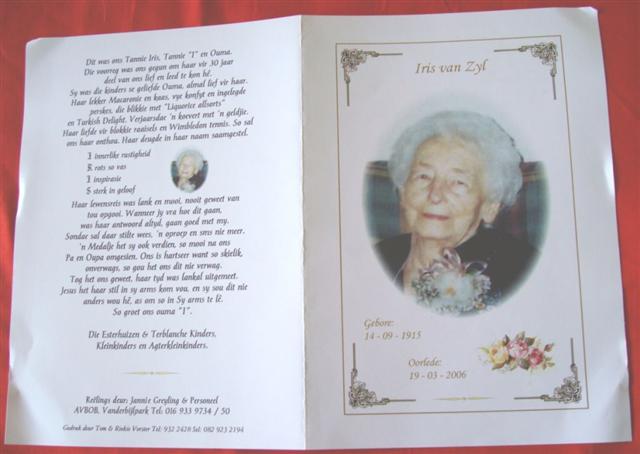 Dit was ons Tannie Iris, Tannie "I" en Ouma.
Die voorreg was ons gegun om haar vir 30 jaar
deel van ons lief en leed te kon hê.
Sy was die kinders se geliefde Ouma, almal lief vir haar.
Haar lekker Macaronie en kaas, vye konfyt en ingelegde
perskes, die blikkie met "Liquorice allsorts"
en Turkish Delight. Verjaarsdae 'n koevert met 'n geldjie.
Haar liefde vir blokkie raaisels en Wimbledon tennis. So sal
ons haar onthou. Haar deugde in haar naam saamgestel.
I innerlike rustigheid
R rots so vas
I inspirasie
S sterk in geloof
Haar lewensreis was lank en mooi, nooit geweet van
tou opgooi. Wanneer jy vra hoe dit gaan,
was haar antwoord altyd, gaan goed met my.
Sondae sal daar stilte wees, 'n oproep en sms nie meer.
'n Medalje het sy ook verdien, so mooi na ons
Pa en Oupa omgesien. Ons is hartseer want so skielik,
onverwags, so gou het ons dit nie verwag.
Tog het ons geweet, haar tyd was lankal uitgemeet.
Jesus het haar stil in sy arms kom vou, en sy sou dit nie
anders wou hê, as om so in Sy arms te lê.
So groet ons ouma "I".
Die Esterhuizen & Terblanche Kinders,
Kleinkinders en Agterkleinkinders.
Reëlings deur: Jannie Greyling & Personeel
AVBOB, Vanderbijlpark Tel: 016 933 9734 / 50
Gedruk deur Tom & Rinkie Vorster Tel: 932 2428 Sel: 082 923 2194
Iris van Zyl
Gebore:
14 - 09 - 1915
Oorlede:
19 - 03 - 2006